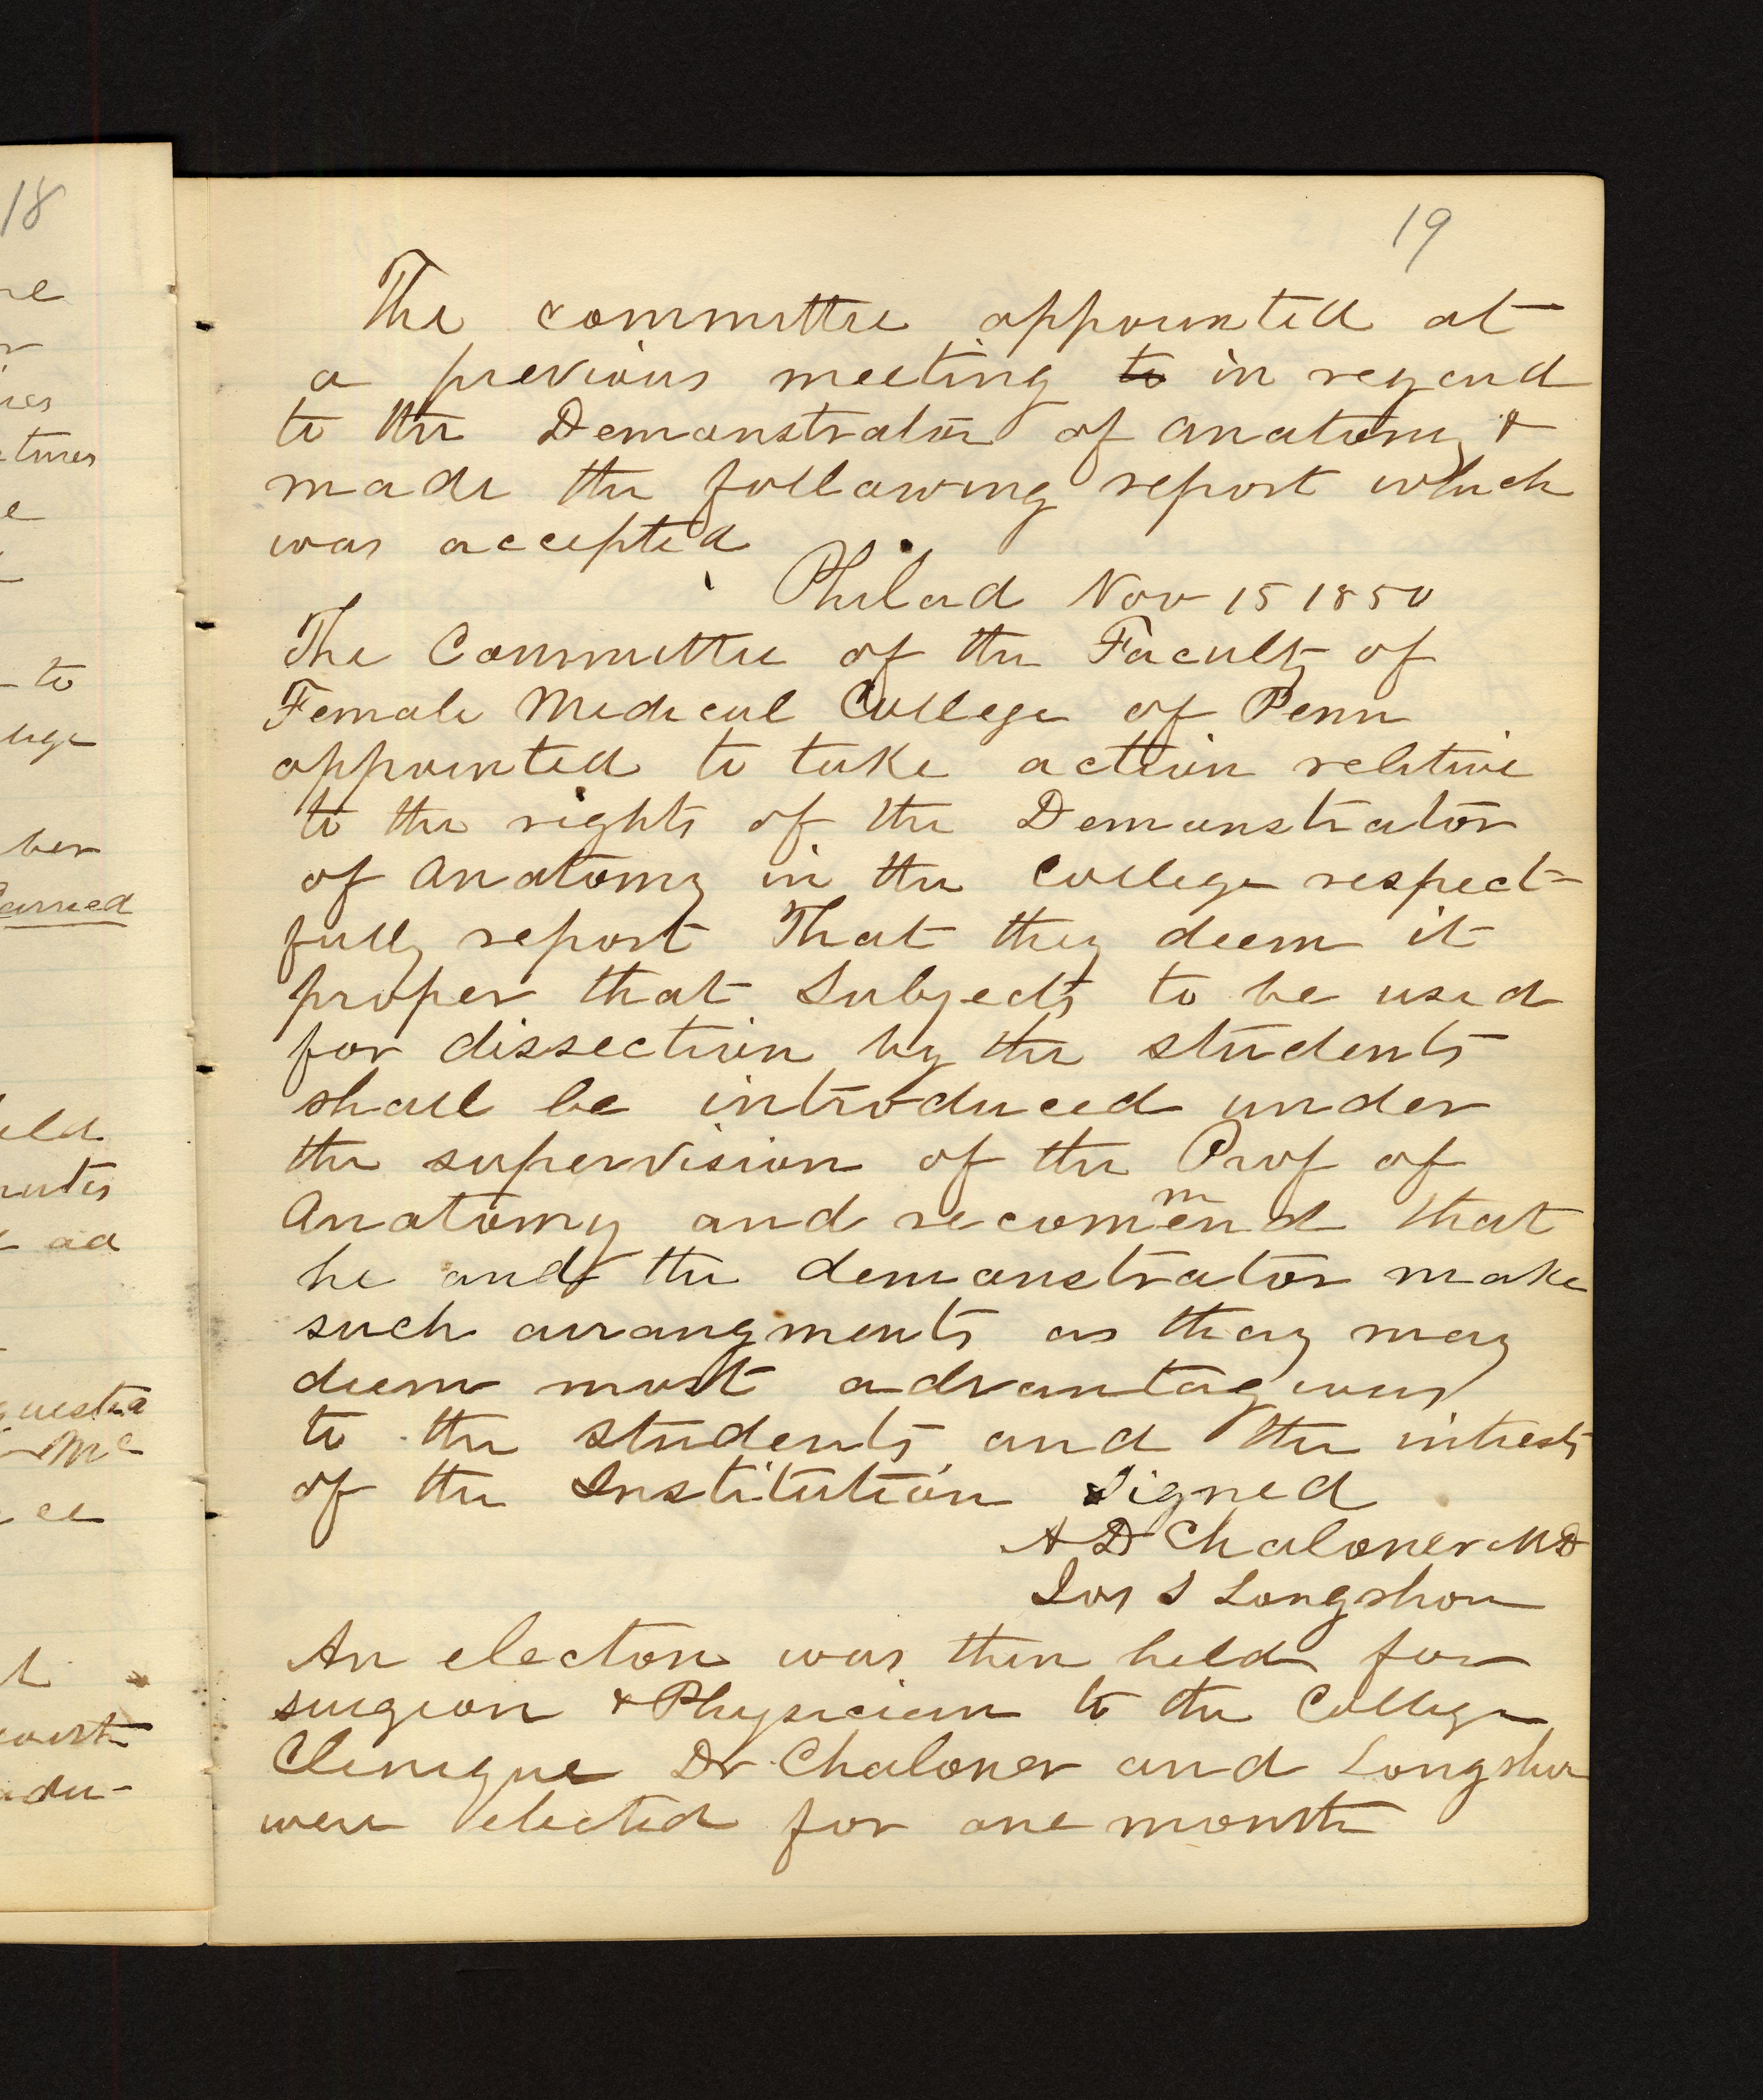 18
19
The committee appointed at
a previous meeting to in regard
to the Demonstrator of anatomy &
made the following report which
was accepted
Philad Nov 15 1850
The Committee of the Faculty of
Female Medical College of Penn
appointed to take action relative
to the rights of the Demonstrator
of Anatomy in the College respect=
fully report That they deem it
proper that Subjects to be used
for dissection by the students
shall be introduced under
the supervision of the Prof of
Anatomy and recommend that
he and the demonstrator make
such arrangments as thay may
deem most advantagious
to the students and the intrests
of the Institution Signed
A D Chaloner MD
Jos S Longshore
An electon was then held for
surgeon & Physician to the College
Clinique Dr Chaloner and Longshore
were elected for one month